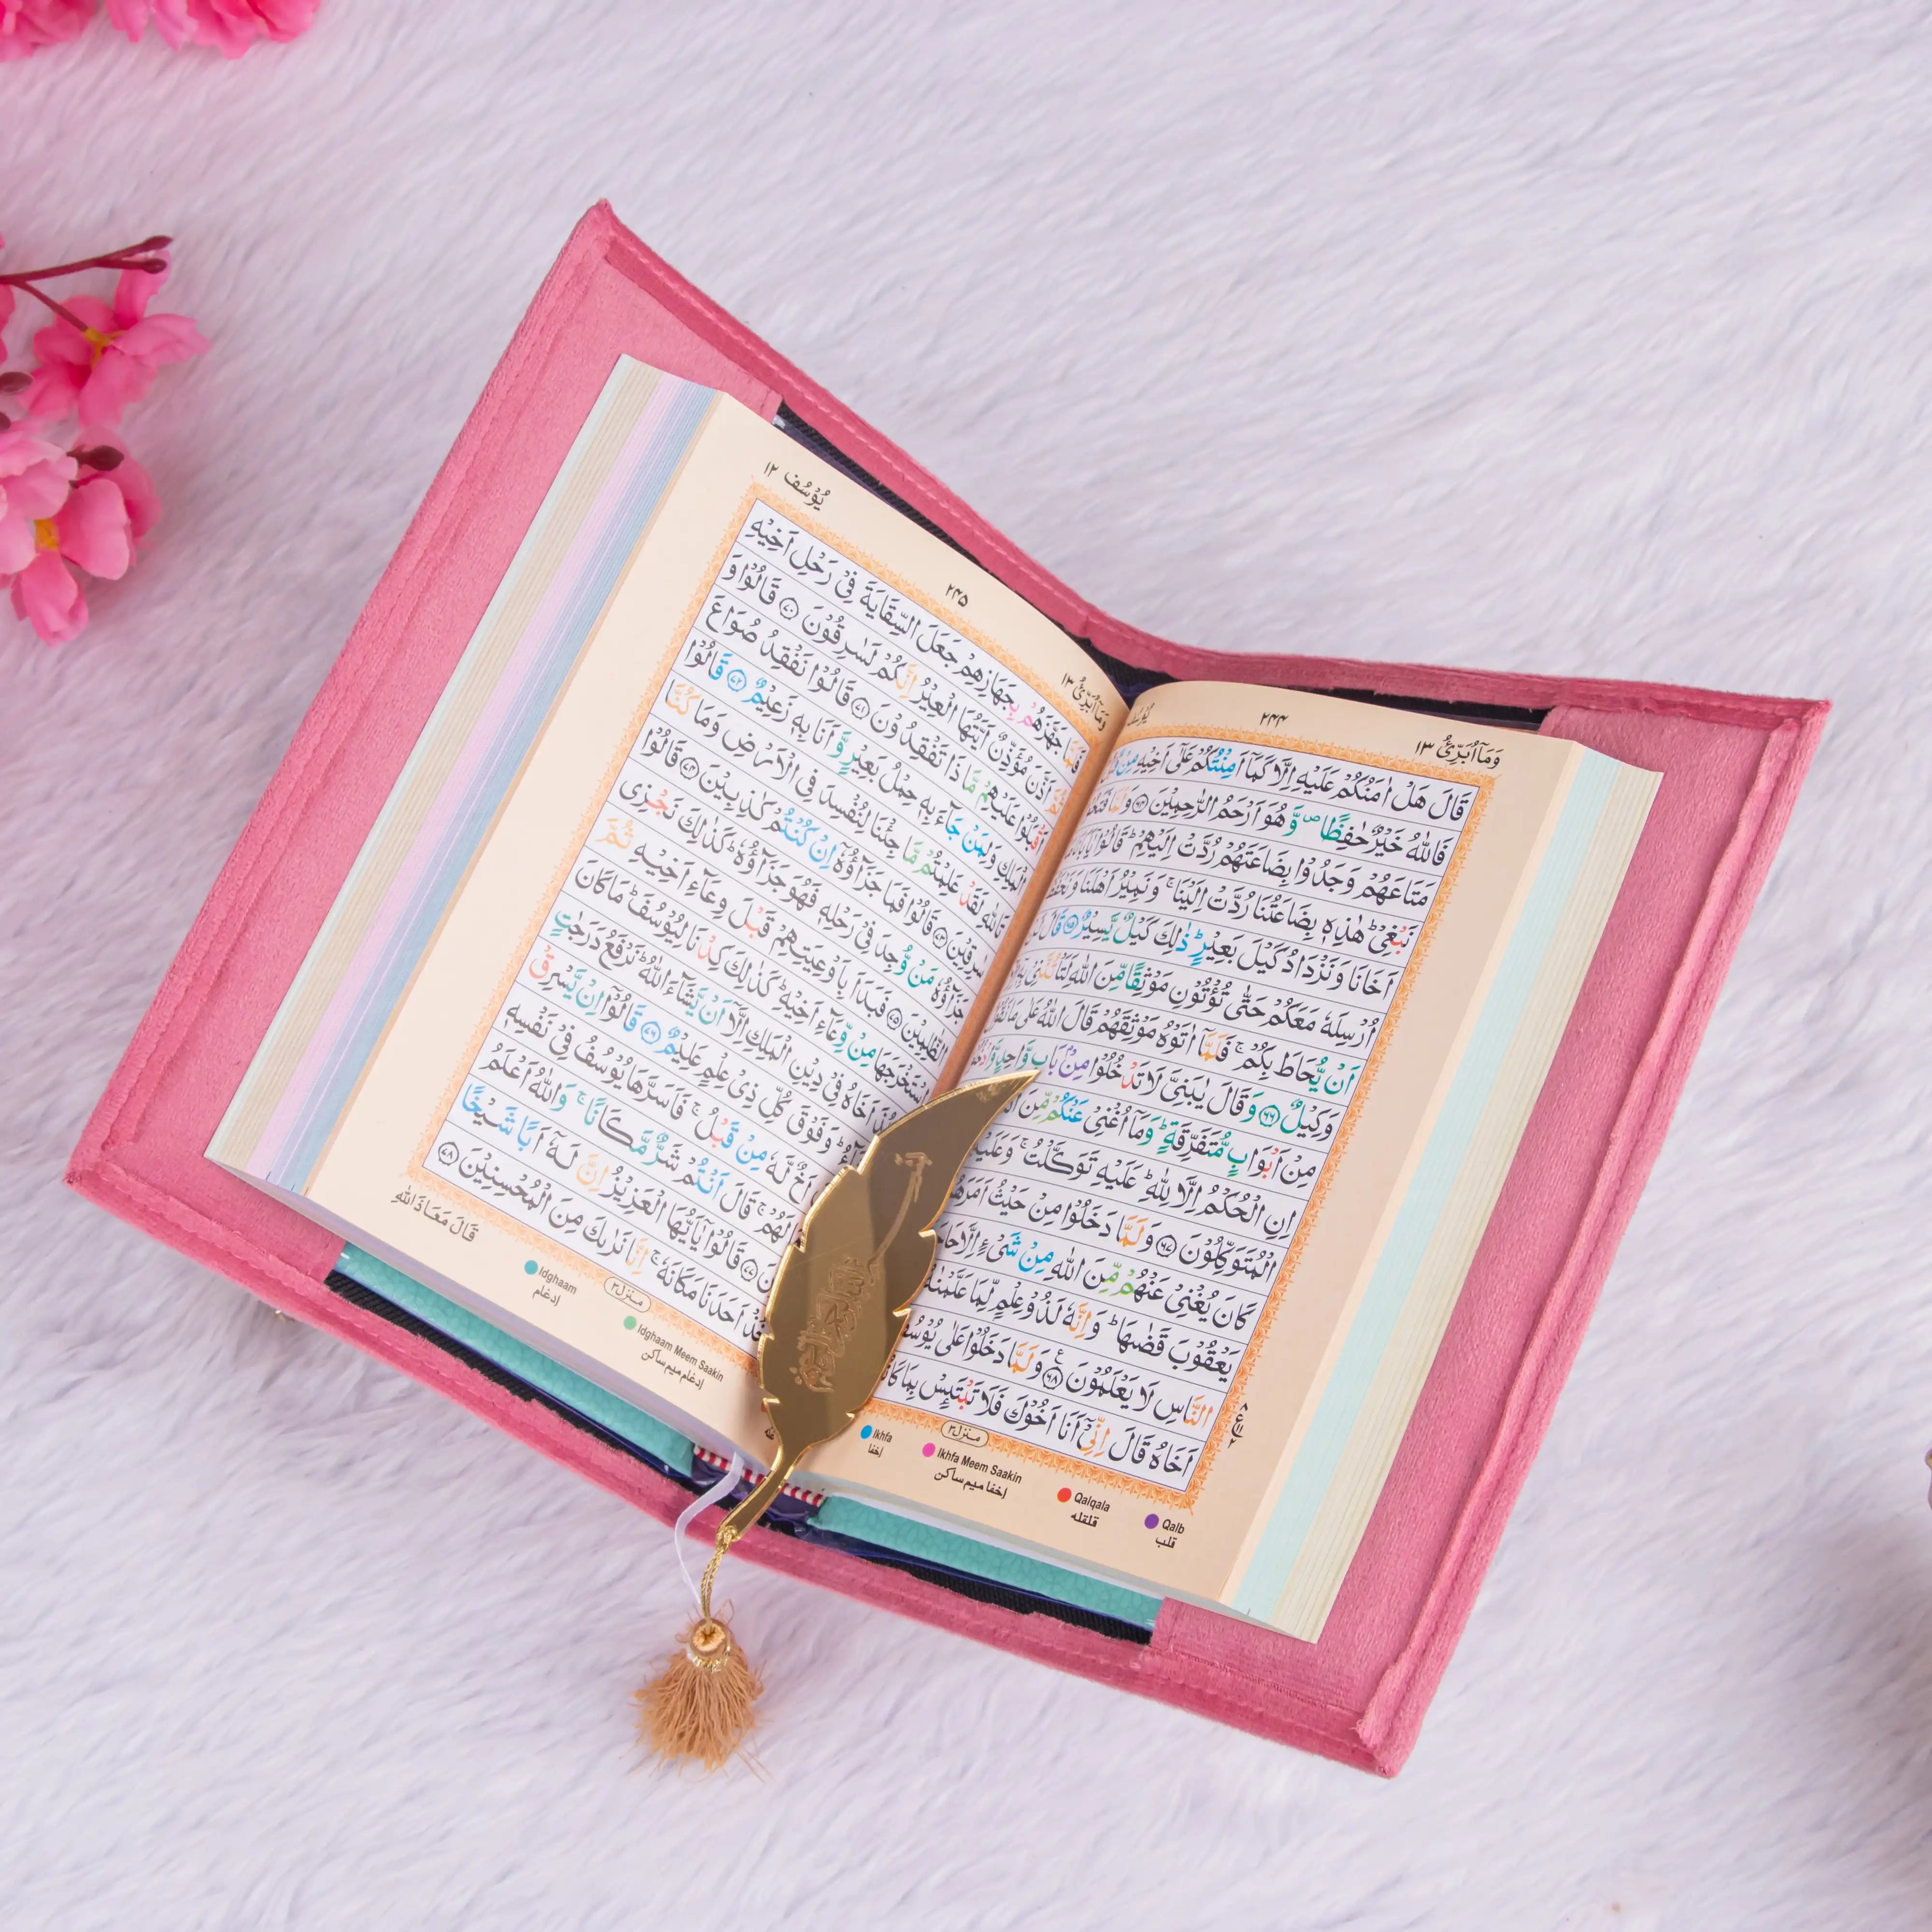 وَمَاۤ اُبَرِّئُ ١٣
٢٤٤
قَالَ هَلْ اٰمَنُكُمْ عَلَيْهِ اِلَّا كَمَاۤ اَمِنْتُكُمْ عَلٰۤى اَخِيْهِ مِنْ
فَاللّٰهُ خَيْرٌ حٰفِظًا ص وَّهُوَ اَرْحَمُ الرّٰحِمِيْنَ ٦٤ وَلَمَّا
مَتَاعَهُمْ وَجَدُوْا بِضَاعَتَهُمْ رُدَّتْ اِلَيْهِمْ ؕ قَالُوْا يٰۤاَبَانَا
نَبْغِيْ ؕ هٰذِهٖ بِضَاعَتُنَا رُدَّتْ اِلَيْنَا ۚ وَنَمِيْرُ اَهْلَنَا وَنَحْفَظُ
اَخَانَا وَنَزْدَادُ كَيْلَ بَعِيْرٍ ؕ ذٰلِكَ كَيْلٌ يَّسِيْرٌ ٦٥ قَالَ لَنْ
اُرْسِلَهٗ مَعَكُمْ حَتّٰى تُؤْتُوْنِ مَوْثِقًا مِّنَ اللّٰهِ لَتَاْتُنَّنِيْ
اَنْ يُّحَاطَ بِكُمْ ۚ فَلَمَّاۤ اٰتَوْهُ مَوْثِقَهُمْ قَالَ اللّٰهُ عَلٰى مَا نَقُوْلُ
وَكِيْلٌ ٦٦ وَقَالَ يٰبَنِيَّ لَا تَدْخُلُوْا مِنْۢ بَابٍ وَّاحِدٍ وَّادْخُلُوْا
مِنْ اَبْوَابٍ مُّتَفَرِّقَةٍ ؕ وَمَاۤ اُغْنِيْ عَنْكُمْ مِّنَ
اِنِ الْحُكْمُ اِلَّا لِلّٰهِ ؕ عَلَيْهِ تَوَكَّلْتُ ۚ وَعَلَيْهِ
الْمُتَوَكِّلُوْنَ ٦٧ وَلَمَّا دَخَلُوْا مِنْ حَيْثُ اَمَرَهُمْ
كَانَ يُغْنِيْ عَنْهُمْ مِّنَ اللّٰهِ مِنْ شَيْءٍ اِلَّا
يَعْقُوْبَ قَضٰىهَا ؕ وَاِنَّهٗ لَذُوْ عِلْمٍ لِّمَا عَلَّمْنٰهُ
النَّاسِ لَا يَعْلَمُوْنَ ٦٨ وَلَمَّا دَخَلُوْا عَلٰى يُوْسُفَ
اَخَاهُ قَالَ اِنِّيْۤ اَنَا اَخُوْكَ فَلَا تَبْتَئِسْ بِمَا
منزل ٣
Ikhfa
إخفا
Ikhfa Meem Saakin
إخفا ميم ساكن
Qalqala
قلقله
Qalb
قلب
وَمَاۤ اُبَرِّئُ ١٣
٢٤٥
يُوْسُف ١٢
فَلَمَّا جَهَّزَهُمْ بِجَهَازِهِمْ جَعَلَ السِّقَايَةَ فِيْ رَحْلِ اَخِيْهِ
اَذَّنَ مُؤَذِّنٌ اَيَّتُهَا الْعِيْرُ اِنَّكُمْ لَسٰرِقُوْنَ ٧٠ قَالُوْا وَ
اَقْبَلُوْا عَلَيْهِمْ مَّا ذَا تَفْقِدُوْنَ ٧١ قَالُوْا نَفْقِدُ صُوَاعَ
الْمَلِكِ وَلِمَنْ جَآءَ بِهٖ حِمْلُ بَعِيْرٍ وَّاَنَا بِهٖ زَعِيْمٌ ٧٢ قَالُوْا
تَاللّٰهِ لَقَدْ عَلِمْتُمْ مَّا جِئْنَا لِنُفْسِدَ فِي الْاَرْضِ وَمَا كُنَّا
سٰرِقِيْنَ ٧٣ قَالُوْا فَمَا جَزَآؤُهٗۤ اِنْ كُنْتُمْ كٰذِبِيْنَ ٧٤ قَالُوْا
جَزَآؤُهٗ مَنْ وُّجِدَ فِيْ رَحْلِهٖ فَهُوَ جَزَآؤُهٗ ؕ كَذٰلِكَ نَجْزِي
الظّٰلِمِيْنَ ٧٥ فَبَدَاَ بِاَوْعِيَتِهِمْ قَبْلَ وِعَآءِ اَخِيْهِ ثُمَّ
اسْتَخْرَجَهَا مِنْ وِّعَآءِ اَخِيْهِ ؕ كَذٰلِكَ كِدْنَا لِيُوْسُفَ ؕ مَا كَانَ
اَخَاهُ فِيْ دِيْنِ الْمَلِكِ اِلَّاۤ اَنْ يَّشَآءَ اللّٰهُ ؕ نَرْفَعُ دَرَجٰتٍ
وَفَوْقَ كُلِّ ذِيْ عِلْمٍ عَلِيْمٌ ٧٦ قَالُوْۤا اِنْ يَّسْرِقْ
اَخٌ لَّهٗ مِنْ قَبْلُ ۚ فَاَسَرَّهَا يُوْسُفُ فِيْ نَفْسِهٖ
لَهُمْ ۚ قَالَ اَنْتُمْ شَرٌّ مَّكَانًا ۚ وَاللّٰهُ اَعْلَمُ
٧٧ قَالُوْا يٰۤاَيُّهَا الْعَزِيْزُ اِنَّ لَهٗۤ اَبًا شَيْخًا
اَحَدَنَا مَكَانَهٗ ۚ اِنَّا نَرٰىكَ مِنَ الْمُحْسِنِيْنَ ٧٨
قَالَ مَعَاذَ اللّٰهِ
منزل ٣
Idghaam
إدغام
Idghaam Meem Saakin
إدغام ميم ساكن